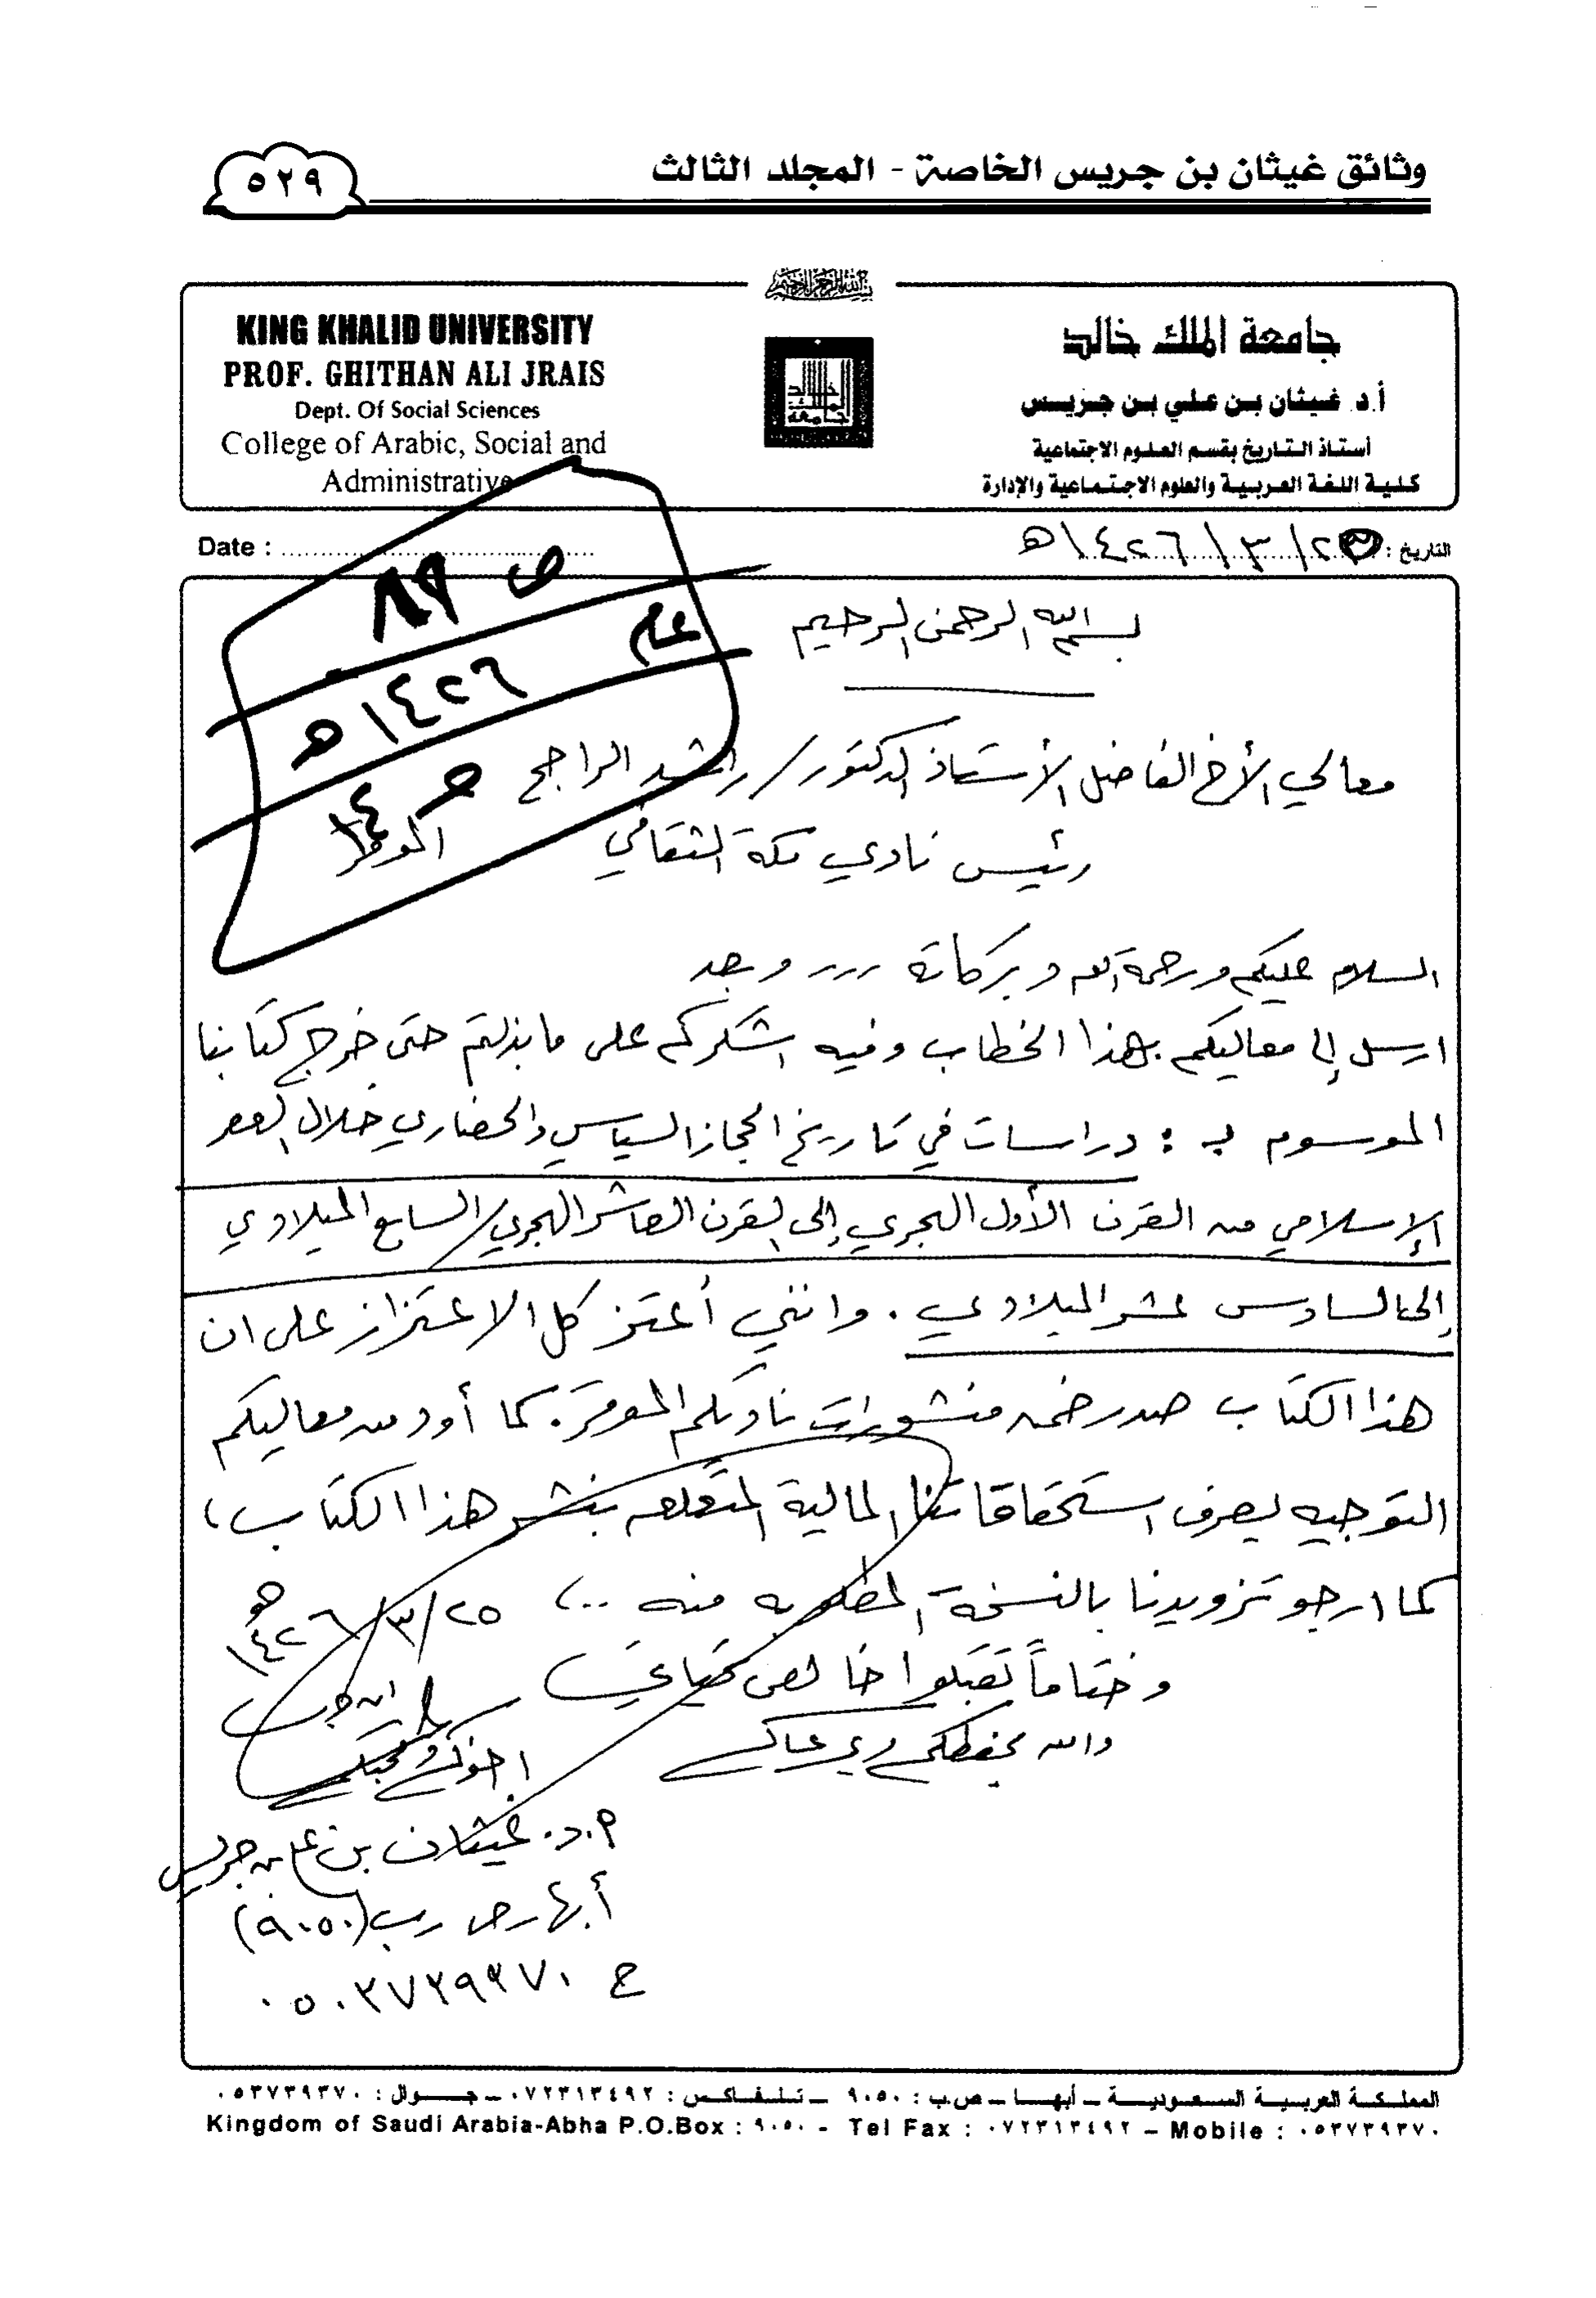 وثائق غيثان بن جريس الخاصة - المجلد الثالث
٥٢٩
KING KHALID UNIVERSITY
PROF. GHITHAN ALI JRAIS
Dept. Of Social Sciences
College of Arabic, Social and
Administrative
جامعة الملك خالد
أ.د. غيثان بن علي بن جريس
أستاذ التاريخ بقسم العلوم الاجتماعية
كلية اللغة العربية والعلوم الاجتماعية والإدارة
Date :
التاريخ : /٣/١٤٢٦هـ
ص ٨٢
عام
١٤٢٦هـ
بسم الله الرحمن الرحيم
معالي الأخ الفاضل الأستاذ الدكتور/ راشد الراجح
رئيس نادي مكة الثقافي الموقر
السلام عليكم ورحمة الله وبركاته ... وبعد
ارسل إلى معاليكم بهذا الخطاب وفيه اشكركم على ما بذلتم حتى خرج كتابنا
الموسوم بـ : دراسات في تاريخ الحجاز السياسي والحضاري خلال العصر
الإسلامي من القرن الأول الهجري إلى القرن العاشر الهجري/السابع الميلادي
إلى السادس عشر الميلادي . وانني أعتز كل الاعتزاز على ان
هذا الكتاب صدر ضمن منشورات ناديكم الموقر . كما أود من معاليكم
التوجيه بصرف استحقاقاتنا المالية المتعلقه بنشر هذا الكتاب ،
كما ارجو تزويدنا بالنسخة المطلوبه منه ..،
٢٥/٣/١٤٢٦هـ
وختاماً تقبلوا خالص تحياتي
والله يحفظكم ويرعاكم
اخوكم ومحبكم
أ.د. غيثان بن علي بن جريس
أبها ص.ب (٩٠٥٠)
ج ٠٥٠٣٧٣٩٣٧٠
المملكة العربية السعودية – أبها – ص.ب : ٩٠٥٠ – تلفاكس : ٠٧٢٣١٣٤٩٢ – جوال : ٠٥٣٧٣٩٣٧٠
Kingdom of Saudi Arabia-Abha P.O.Box : ٩٠٥٠ - Tel Fax : ٠٧٢٣١٣٤٩٢ – Mobile : ٠٥٣٧٣٩٣٧٠